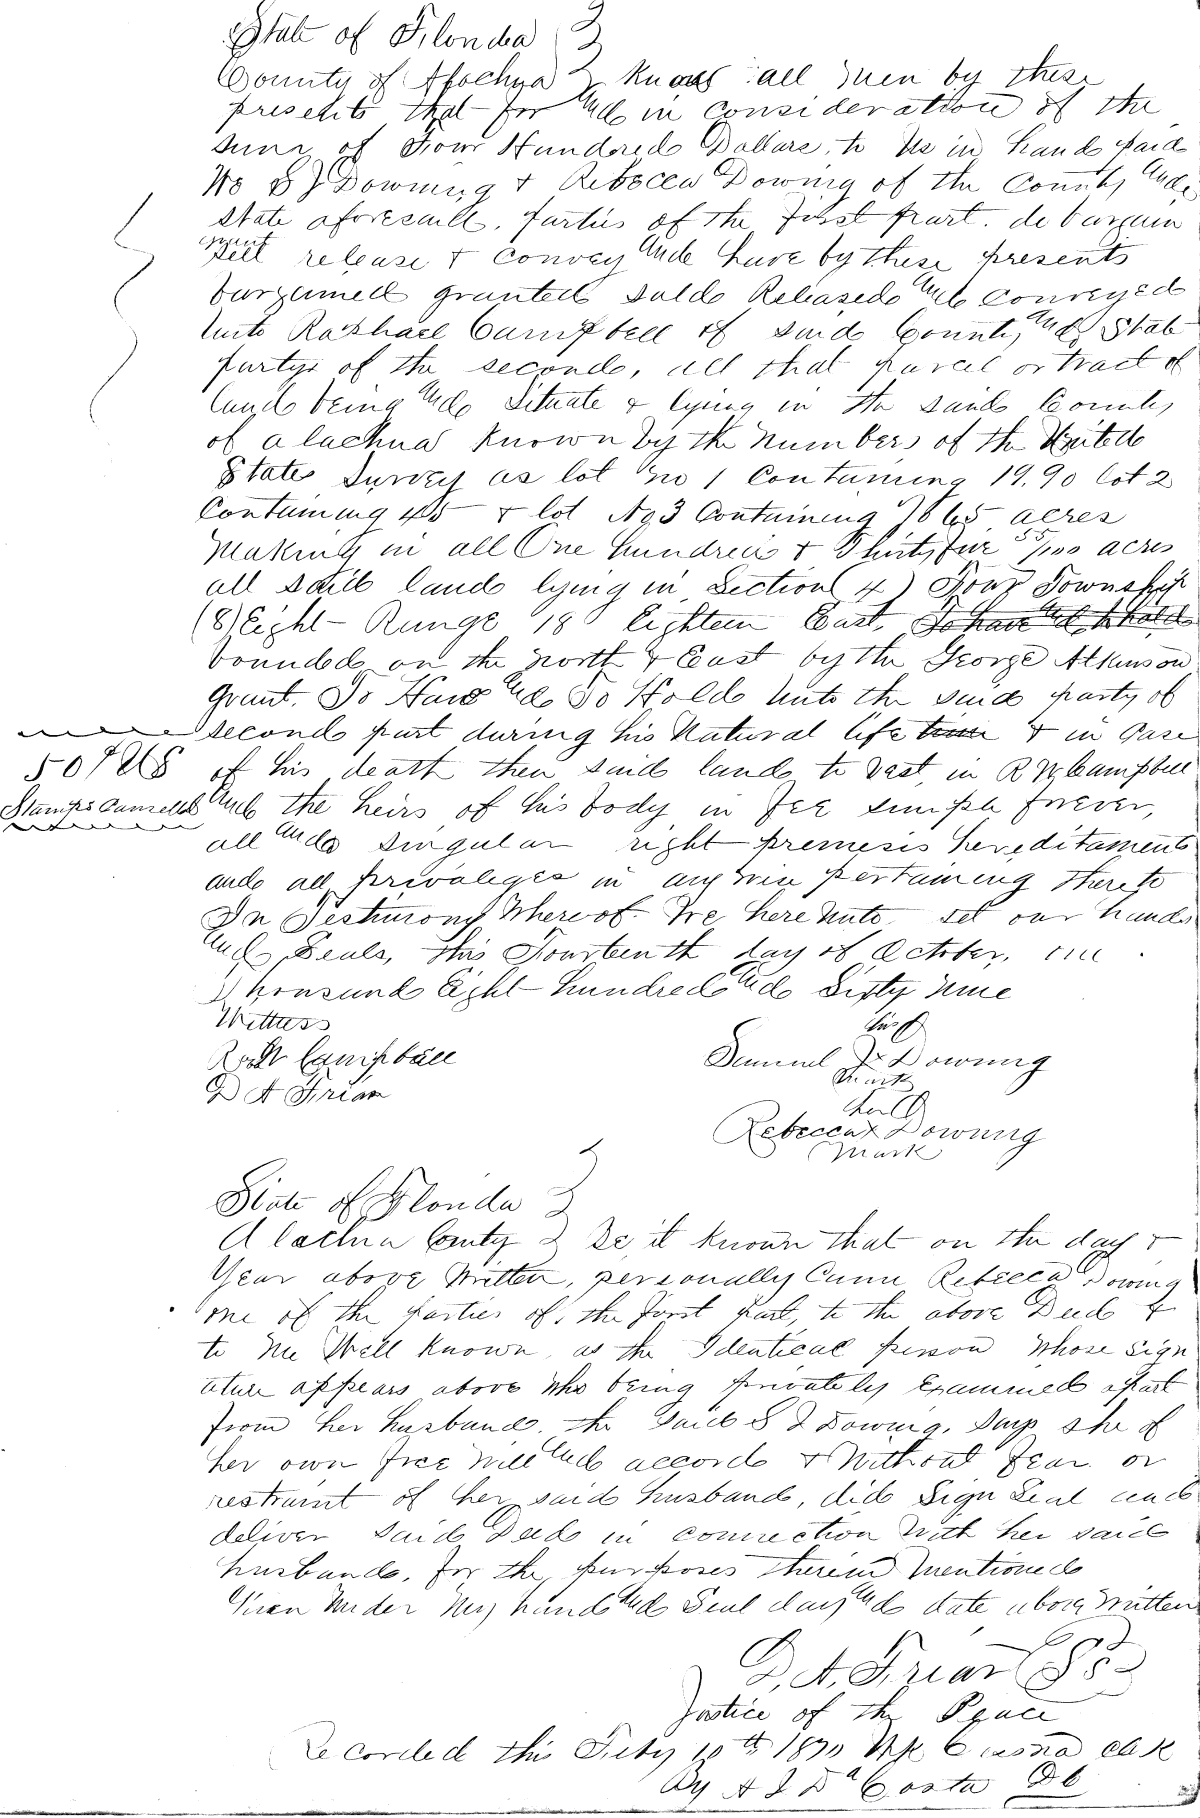 State of Florida
County of Alachua Know all men by these
presents that for and in consideration of the
sum of Four Hundred Dollars, to Us in hand paid
We S J Downing & Rebecca Dowing of the County and
state aforesaid, parties of the first part. do bargain
grant
sell release & convey and have by these presents
bargained granted sold Released and conveyed
Unto Raphael Campbell of said County and State
party of the second, all that parcel or tract of
land being and situate & lying in the said County
of alachua Known by the numbers of the United
States Survey as lot no 1 Containing 19.90 lot 2
Containing 45 & lot No 3 Containing 70 65 acres
Making in all One hundred & Thirty five 55/100 acres
all said land lying in Section (4) Four Township
(8) Eight - Range 18 Eighteen East, To have and to hold
bounded on the north & East by the George Atkinson
grant. To Have and To Hold Unto the said party of
second part during his Natural life time & in Case
50 cts U S
of his death then said land to Vest in R W Campbell
Stamps Cancelled
and the heirs of his body in fee simple forever,
all and singular right premesis hereditaments
and all privaleges in any wise pertaining thereto
In Testimony Whereof We here unto set our hands
and Seals, this Fourteenth day of October, one
Thousand Eight hundred and Sixty nine
Witness
his
R W Campbell
Samuel J x Downing
mark
D A Frier
her
Rebecca x Downing
mark
State of Florida
Alachua County Be it Known that on the day &
Year above Written, personally Came Rebecca Dowing
one of the parties of the first part, to the above Deed &
to me Well Known as the Identical person whose sign
ature appears above who being privately Examined apart
from her husband, the said S J Dowing, Says she of
her own free will and accord & Without Fear or
restraint of her said husband, did Sign Seal and
deliver said Deed in connection With her said
husband, for the purposes therein mentioned
Given Under My hand and Seal day and date above written
D. A. Frier
Justice of the Peace
Recorded this Feby 10th 1870 Clk
By A J Da Costa DC